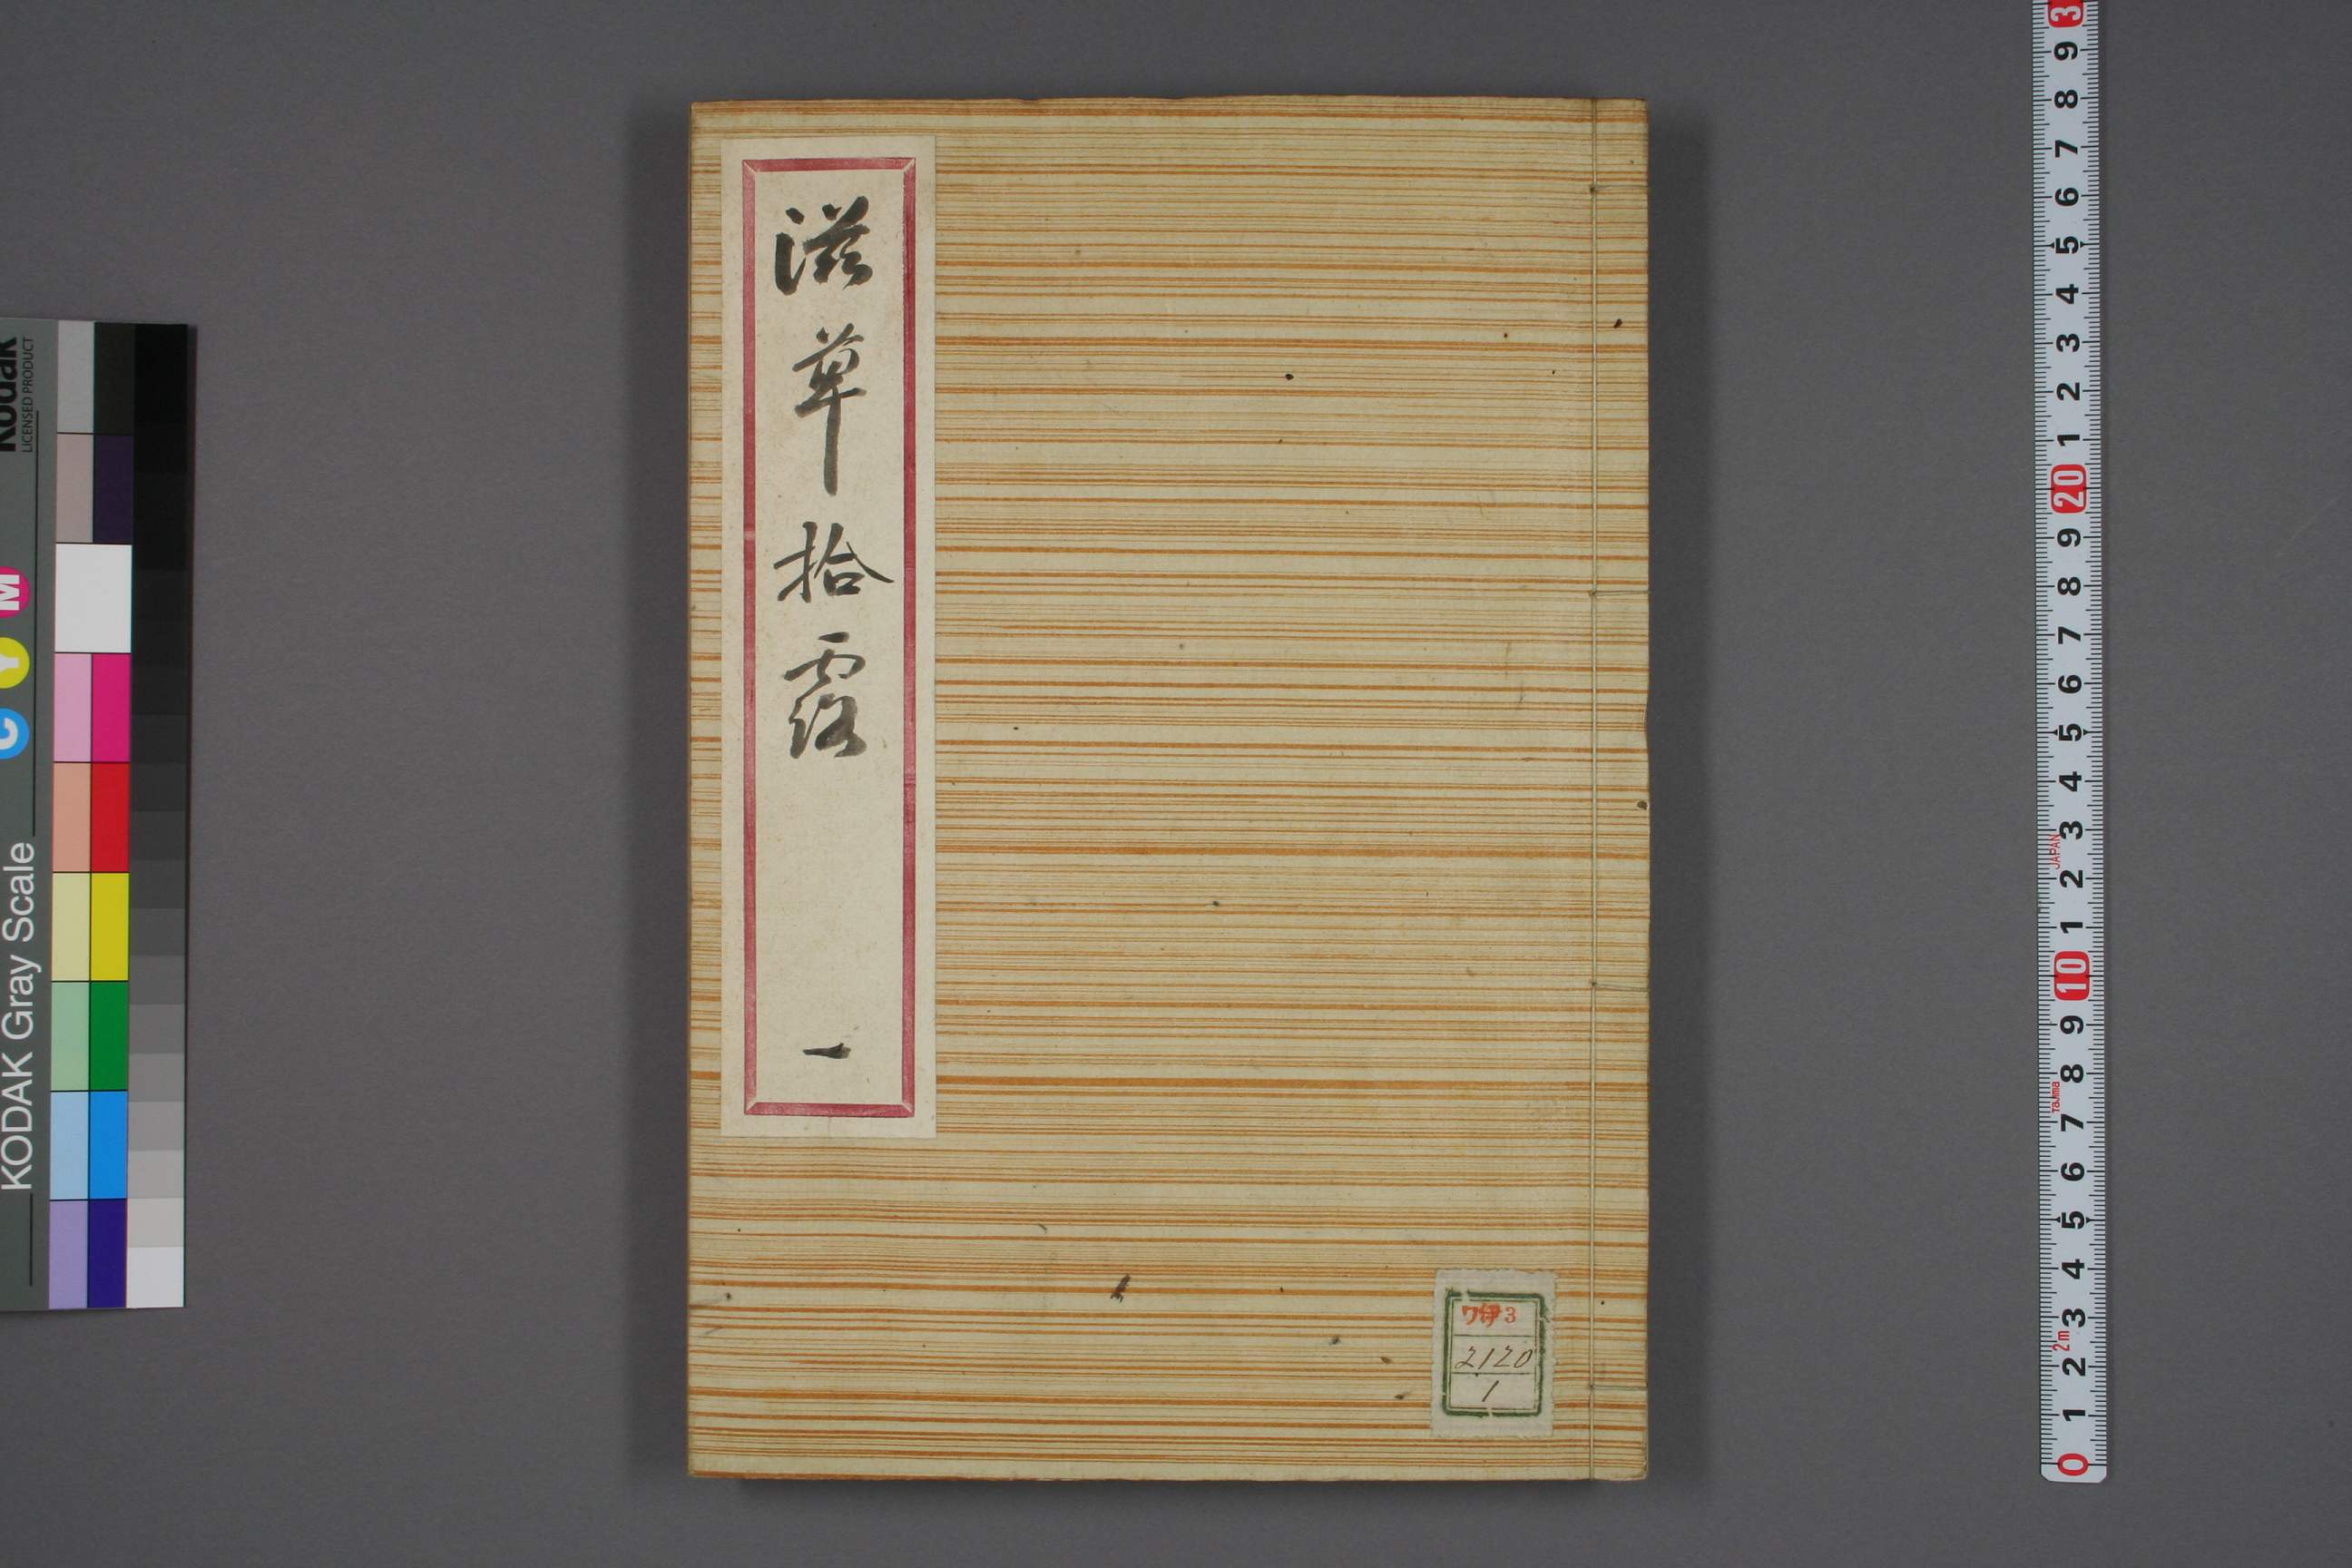 滋草拾露
一
ワ伊3
2120
1
Kodak
LICENSED PRODUCT
KODAK Gray Scale
C Y M
3
9
8
7
6
5
4
3
2
1
20
9
8
7
6
5
4
3
JAPAN
2
1
10
9
8
Tajima
7
6
5
4
3
2m
2
1
0